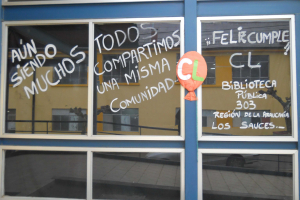 AÚN
SIENDO
MUCHOS
TODOS
COMPARTIMOS
UNA MISMA
COMUNIDAD
CL
¡¡FELIZ CUMPLE
CL
BIBLIOTECA
PÚBLICA
303
REGIÓN DE LA ARAUCANÍA
LOS SAUCES...